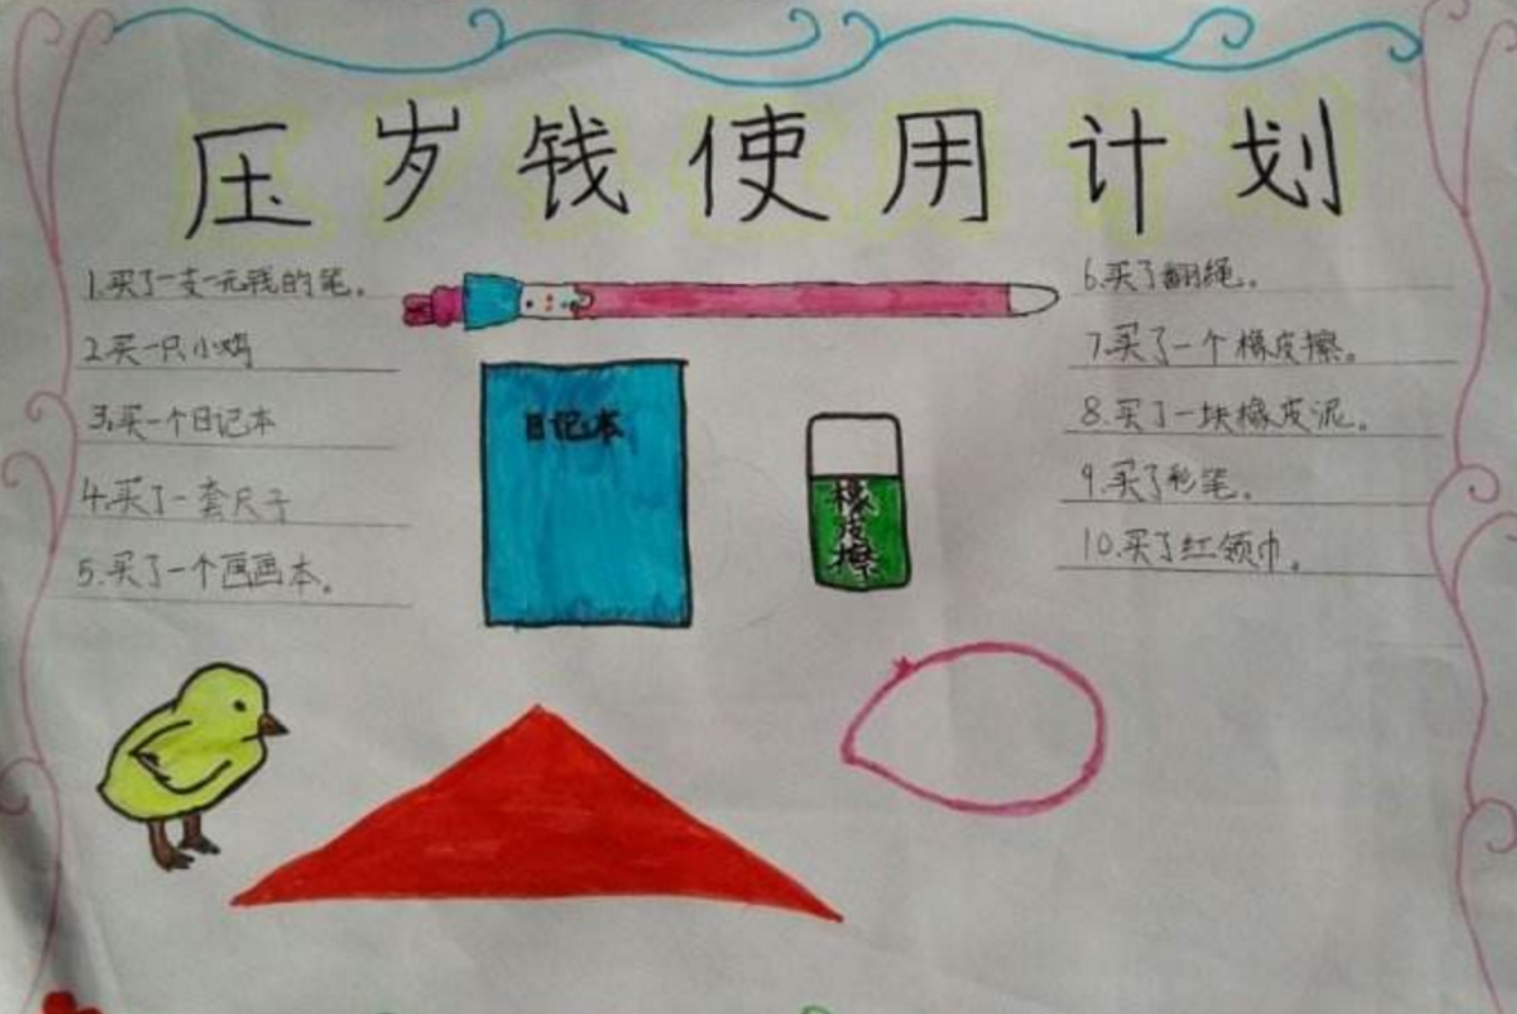 压岁钱使用计划
1.买了一支一元钱的笔。
2.买一只小鸡
3.买一个日记本
4.买了一套尺子
5.买了一个画画本。
日记本
橡皮擦
6.买了翻绳。
7.买了一个橡皮擦。
8.买了一块橡皮泥。
9.买了彩笔。
10.买了红领巾。